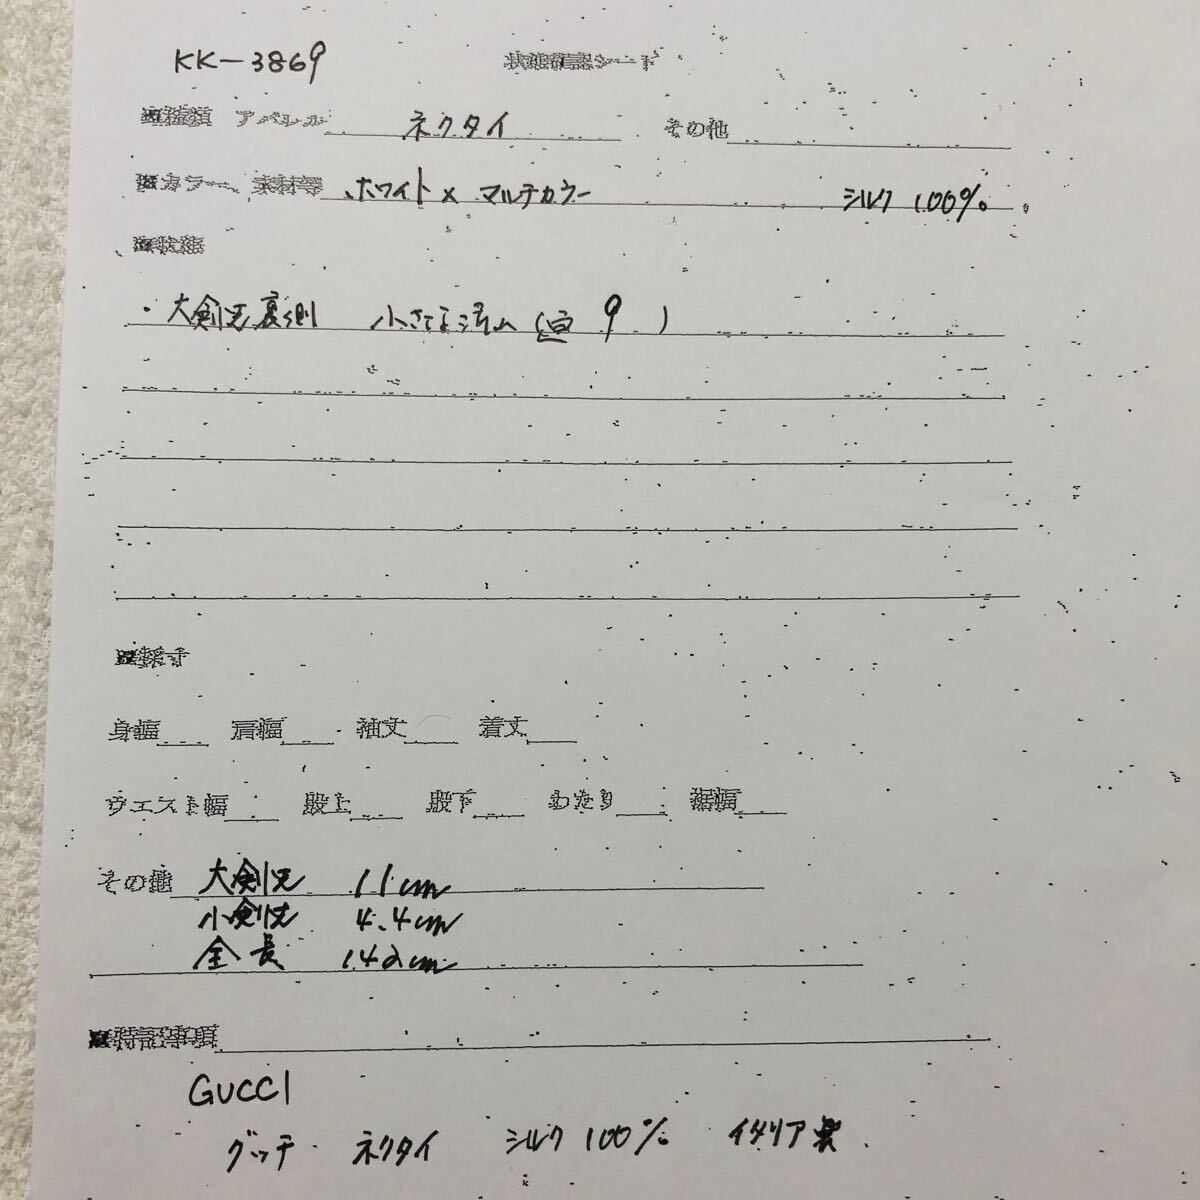 KK-3869
状態確認シート
■種類 アパレル ネクタイ その他
■カラー、素材等 ホワイト×マルチカラー シルク 100%
■状態
・大剣先裏側 小さな汚れ(画 9 )
■採寸
身幅 肩幅 袖丈 着丈
ウエスト幅 股上 股下 わたり 裾幅
その他 大剣先 11cm
小剣先 4.4cm
全長 142cm
■特記事項
GUCCI
グッチ ネクタイ シルク 100% イタリア製